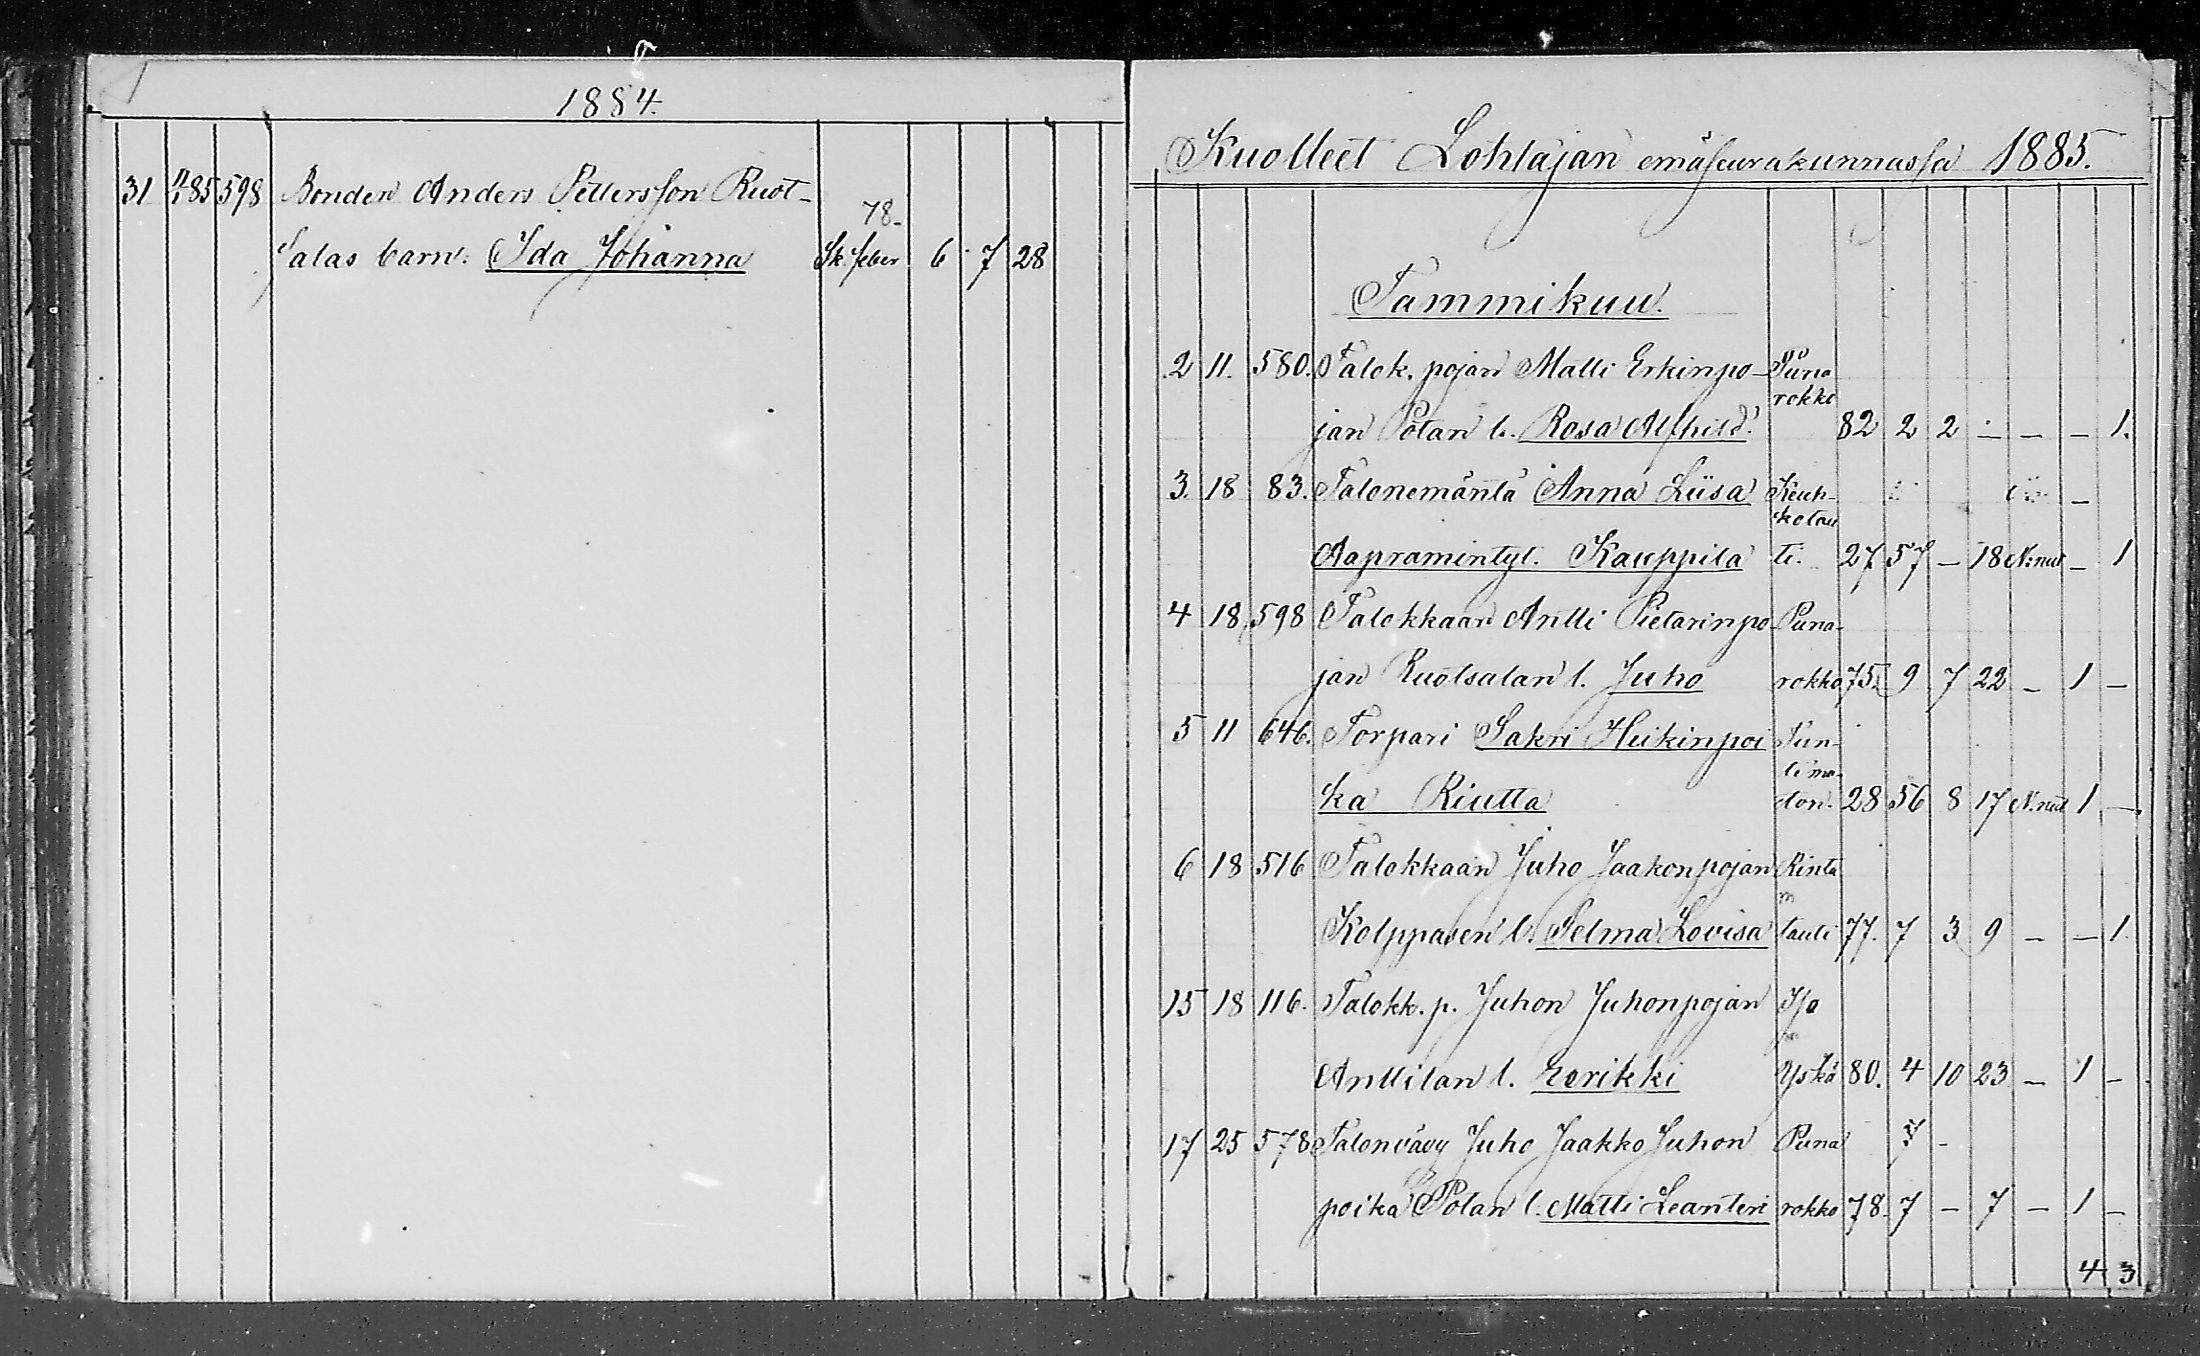 1884.
31 11/1 85 598 Bonden Anders Pettersson Ruot-
78-
salas barn: Ida Johanna Sk. feber 6 7 28
Kuolleet Lohtajan emäseurakunnassa 1885.
Tammikuu.
2 11. 580. Talok. pojan Matti Erkinpo- Puna
rokko
jan Potan l. Rosa Alfhild. 82 2 2 - - - 1.
3. 18 83. Talonemäntä Anna Liisa Keuh-
kotau
Aapramintyt. Kauppila ti. 27 57 - 18 N:nut - 1
4 18 598 Talokkaan Antti Pietarinpo- Puna-
jan Ruotsalan l. Juho rokko 75. 9 7 22 - 1 -
5 11 646. Torpari Sakri Heikinpoi Tun-
tema-
ka Riutta ton. 28 56 8 17 N:nut 1 -
6 18 516 Talokkaan Juho Jaakonpojan Rinta
Kolppasen l. Selma Lovisa tauti 77. 7 3 9 - - 1.
15 18 116. Talokk. p. Juhon Juhonpojan Iso
Anttilan l. Eerikki Yskä 80. 4 10 23 - 1 -
17 25 578 Talonvävy Juho Jaakko Juhon Puna
poika Potan l. Matti Leanteri rokko 78. 7 - 7 - 1 -
4 3